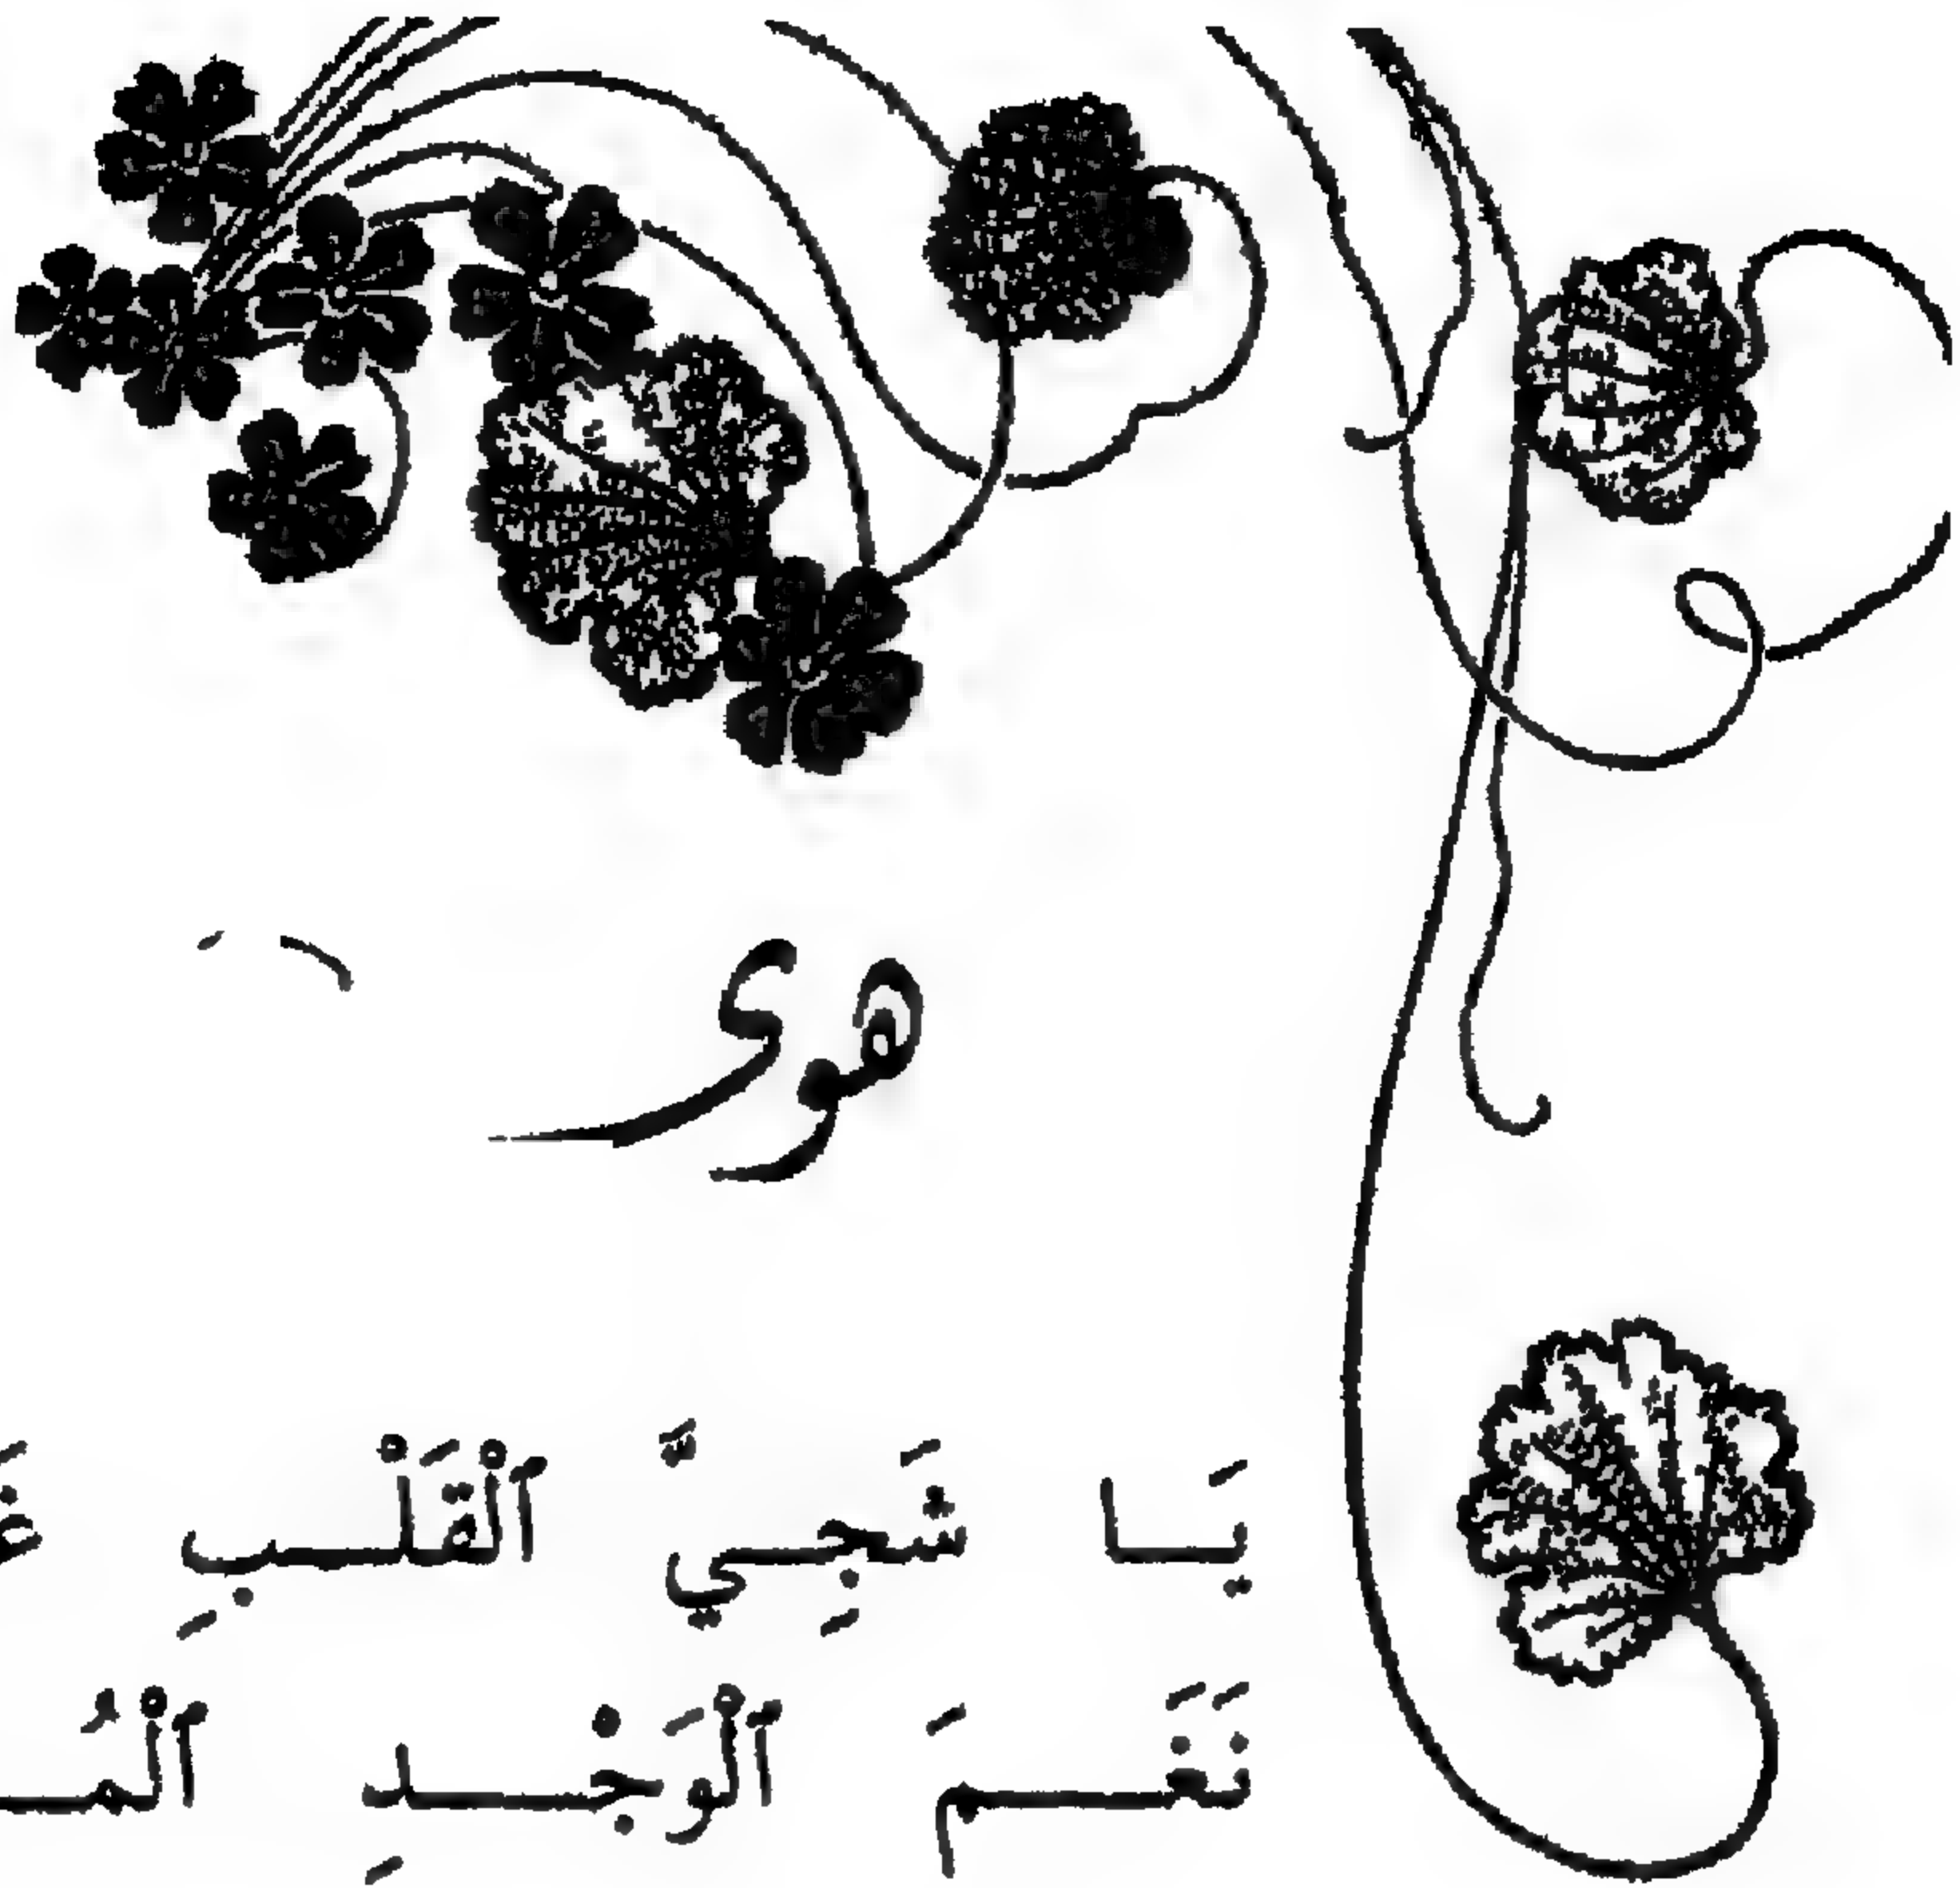 هوى
يَا شَجِيَّ ٱلْقَلْبِ
نَغَمَ ٱلْوَجْدِ